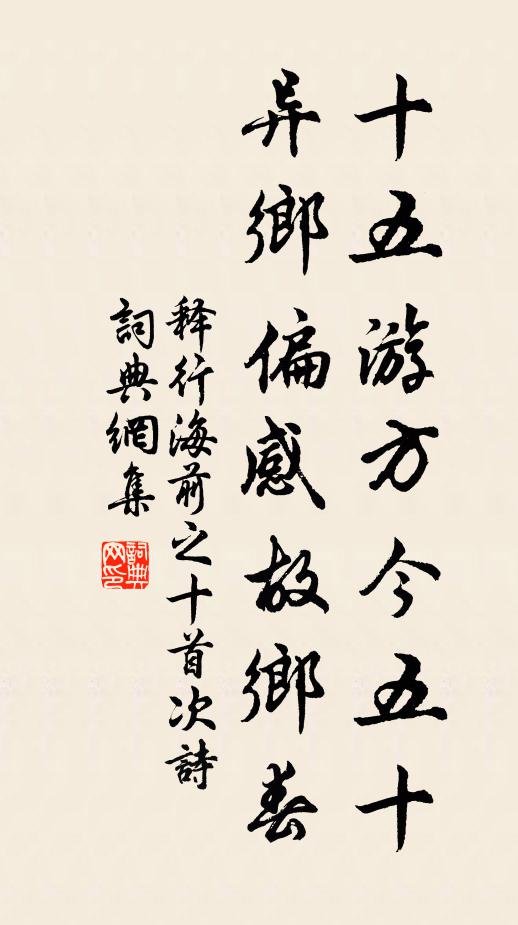 十五游方今五十
异鄉偏感故鄉春
释行海前之十首次詩
詞典網集
詞典网印